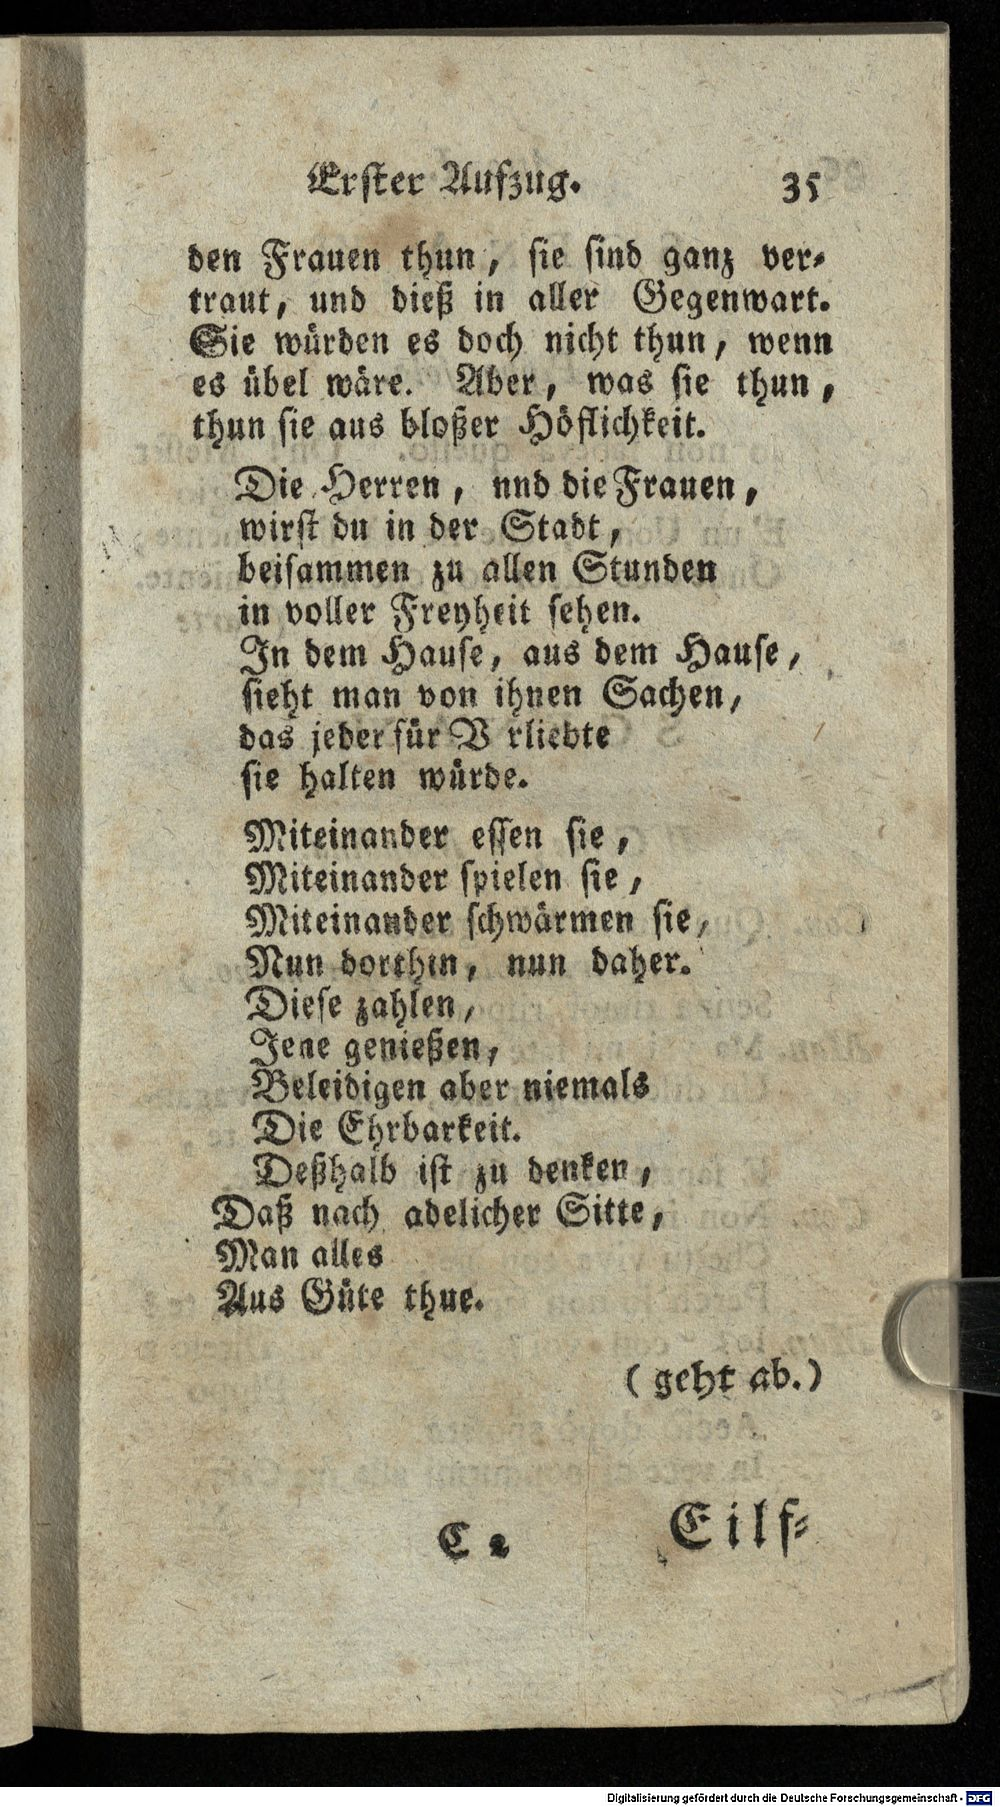 Erster Aufzug. 35
den Frauen thun, sie sind ganz ver-
traut, und dieß in aller Gegenwart.
Sie würden es doch nicht thun, wenn
es übel wäre. Aber, was sie thun,
thun sie aus bloßer Höflichkeit.
Die Herren, nnd die Frauen,
wirst du in der Stadt,
beisammen zu allen Stunden
in voller Freyheit sehen.
In dem Hause, aus dem Hause,
sieht man von ihnen Sachen,
das jeder für V rliebte
sie halten würde.
Miteinander essen sie,
Miteinander spielen sie,
Miteinander schwärmen sie,
Nun dorthin, nun daher.
Diese zahlen,
Jene genießen,
Beleidigen aber niemals
Die Ehrbarkeit.
Deßhalb ist zu denken,
Daß nach adelicher Sitte,
Man alles
Aus Güte thue.
(geht ab.)
C 2 Eilf-
Digitalisierung gefördert durch die Deutsche Forschungsgemeinschaft - DFG